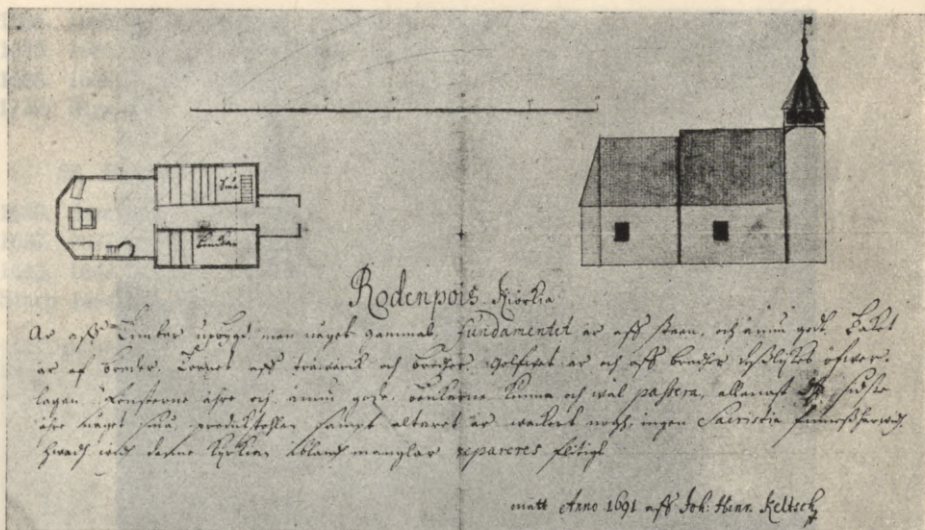 Små
Rodenpois Kiörkia
Är aff Timber upbygd, men något gammal. Fundamentet är aff steen, och ännu godt. Taket
är af bräder. Tornet aff träwerck och bräder. Golfwet är och aff bräder
lagdt. Fönsterne ähre och ännu gode. bänckerne kunna och wäl passera, allenast
ähre något små, predikstohlen sampt altaret är wackert nogh, ingen Sacristia
Hwadh wid denne Kyrkian ibland manglar repareres flitigt
mätt Anno 1691 aff Joh: Hinr. Keltsch